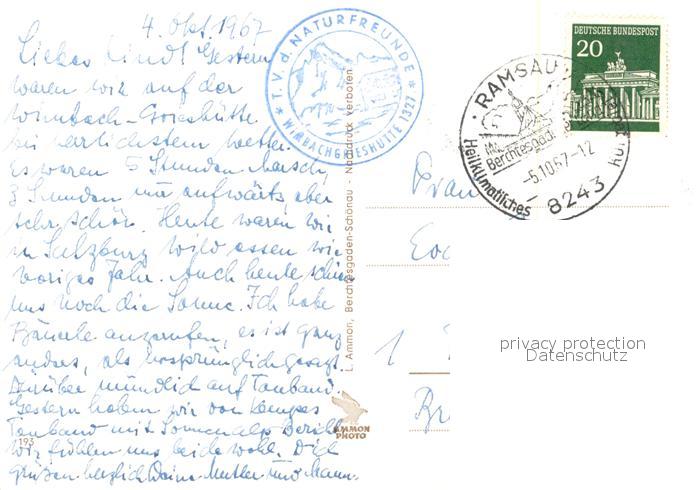 4. Okt. 1967
Liebes Kind! Gestern
waren wir auf der
Wimbach-Grieshütte
bei herrlichstem Wetter.
Es waren 5 Stunden Marsch,
3 Stunden nur aufwärts, aber
sehr schön. Heute waren wir
in Salzburg Wild essen wie
voriges Jahr. Auch heute schien
uns noch die Sonne. Ich habe
angerufen, es ist ganz
anders, als ursprünglich gesagt.
Darüber mündlich auf Tonband.
Gestern haben wir von
Tonband mit Sonnenalp Bericht
Wir fühlen uns beide wohl. Dich
grüßen herzlich Deine Mutter und Mann.
193
T.V.d. NATURFREUNDE
WIMBACHGRIESHÜTTE 1327
L. Ammon, Berchtesgaden-Schönau - Nachdruck verboten
AMMON
PHOTO
DEUTSCHE BUNDESPOST
20
RAMSAU
Berchtesgaden
Heilklimatisches
-5.10.67-12
8243
Frau
1
Br
privacy protection
Datenschutz